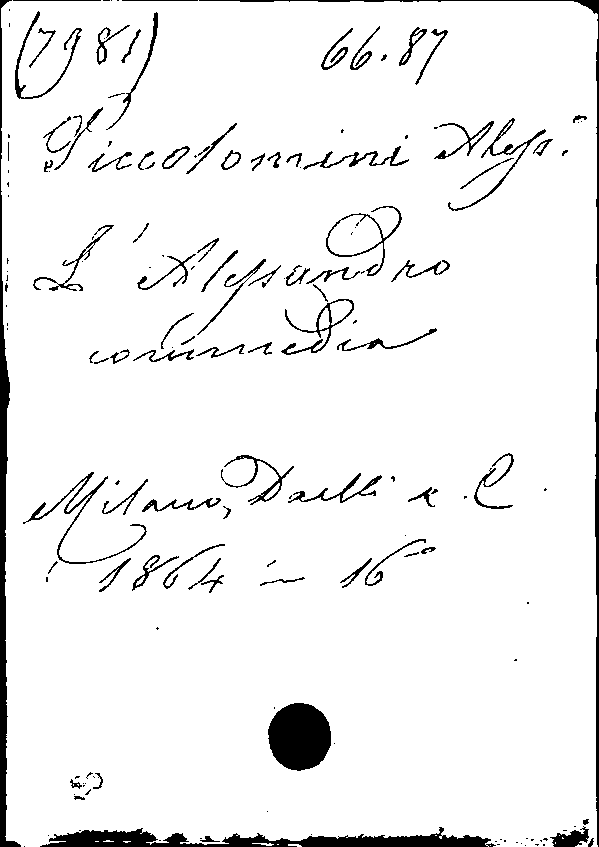 (7981) 66.87
Piccolomini Aless.º
L'Alessandro
commedia
Milano, Daelli e C.
1864 in 16º